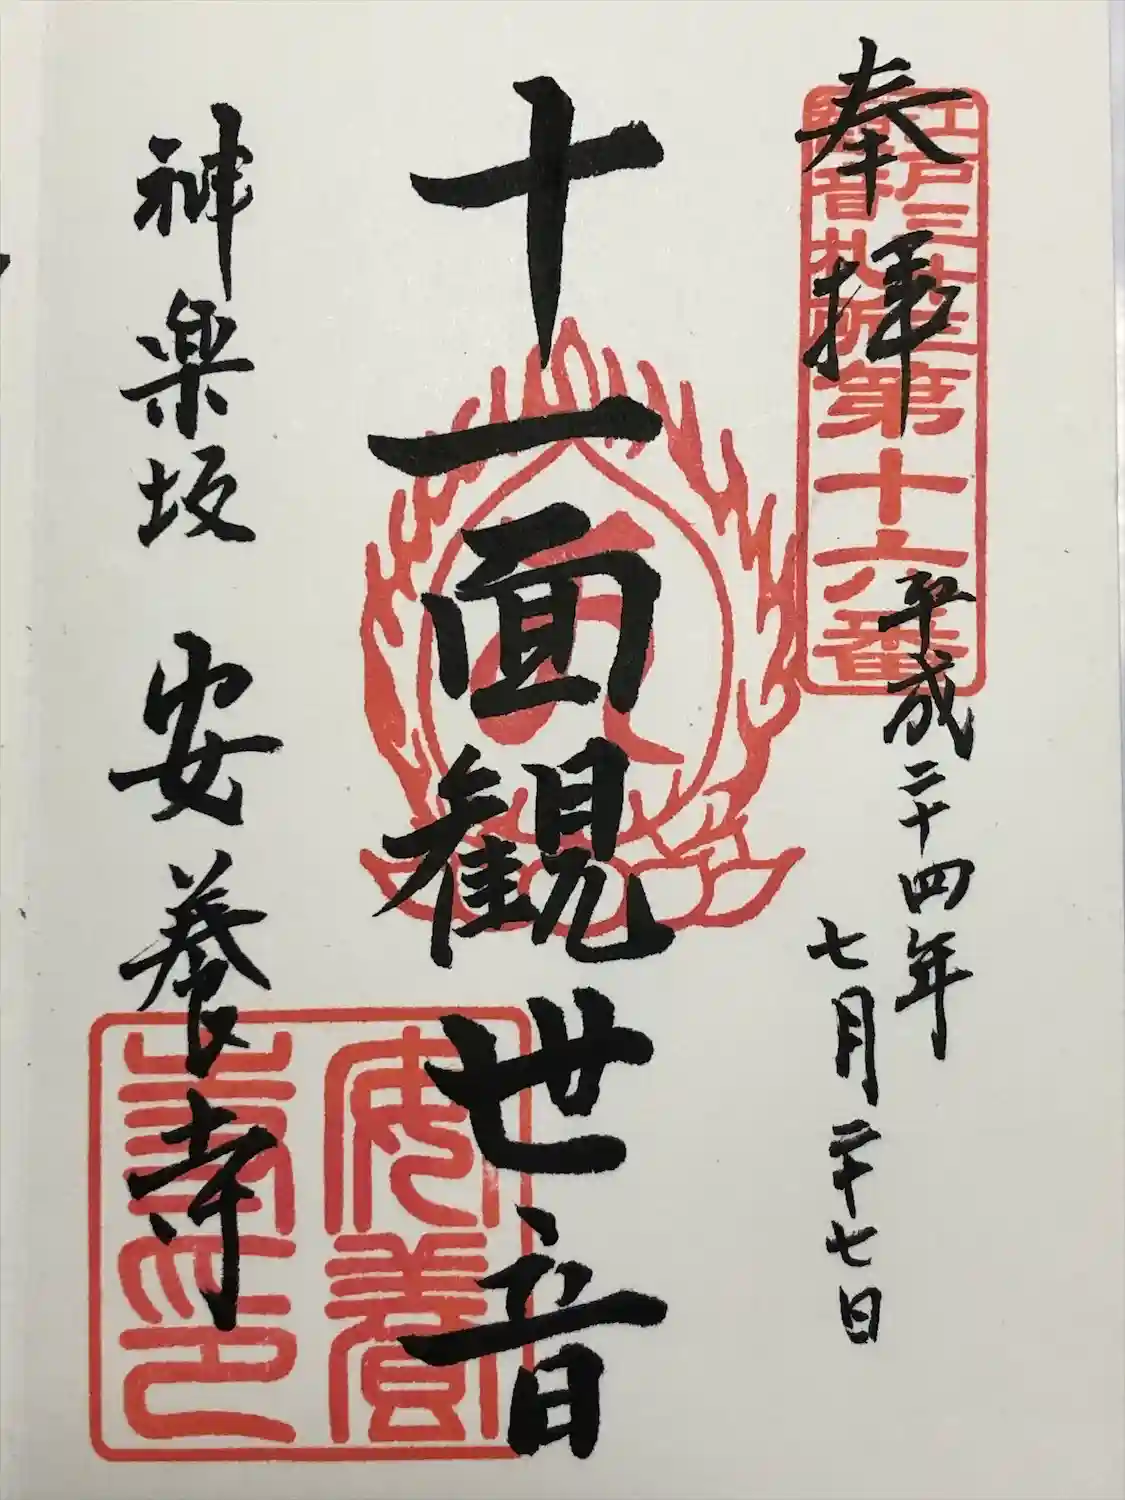 奉拝
江戸三十三
観音札所第十六番
平成二十四年
七月二十七日
十一面観世音
神楽坂 安養寺
安養
寺印